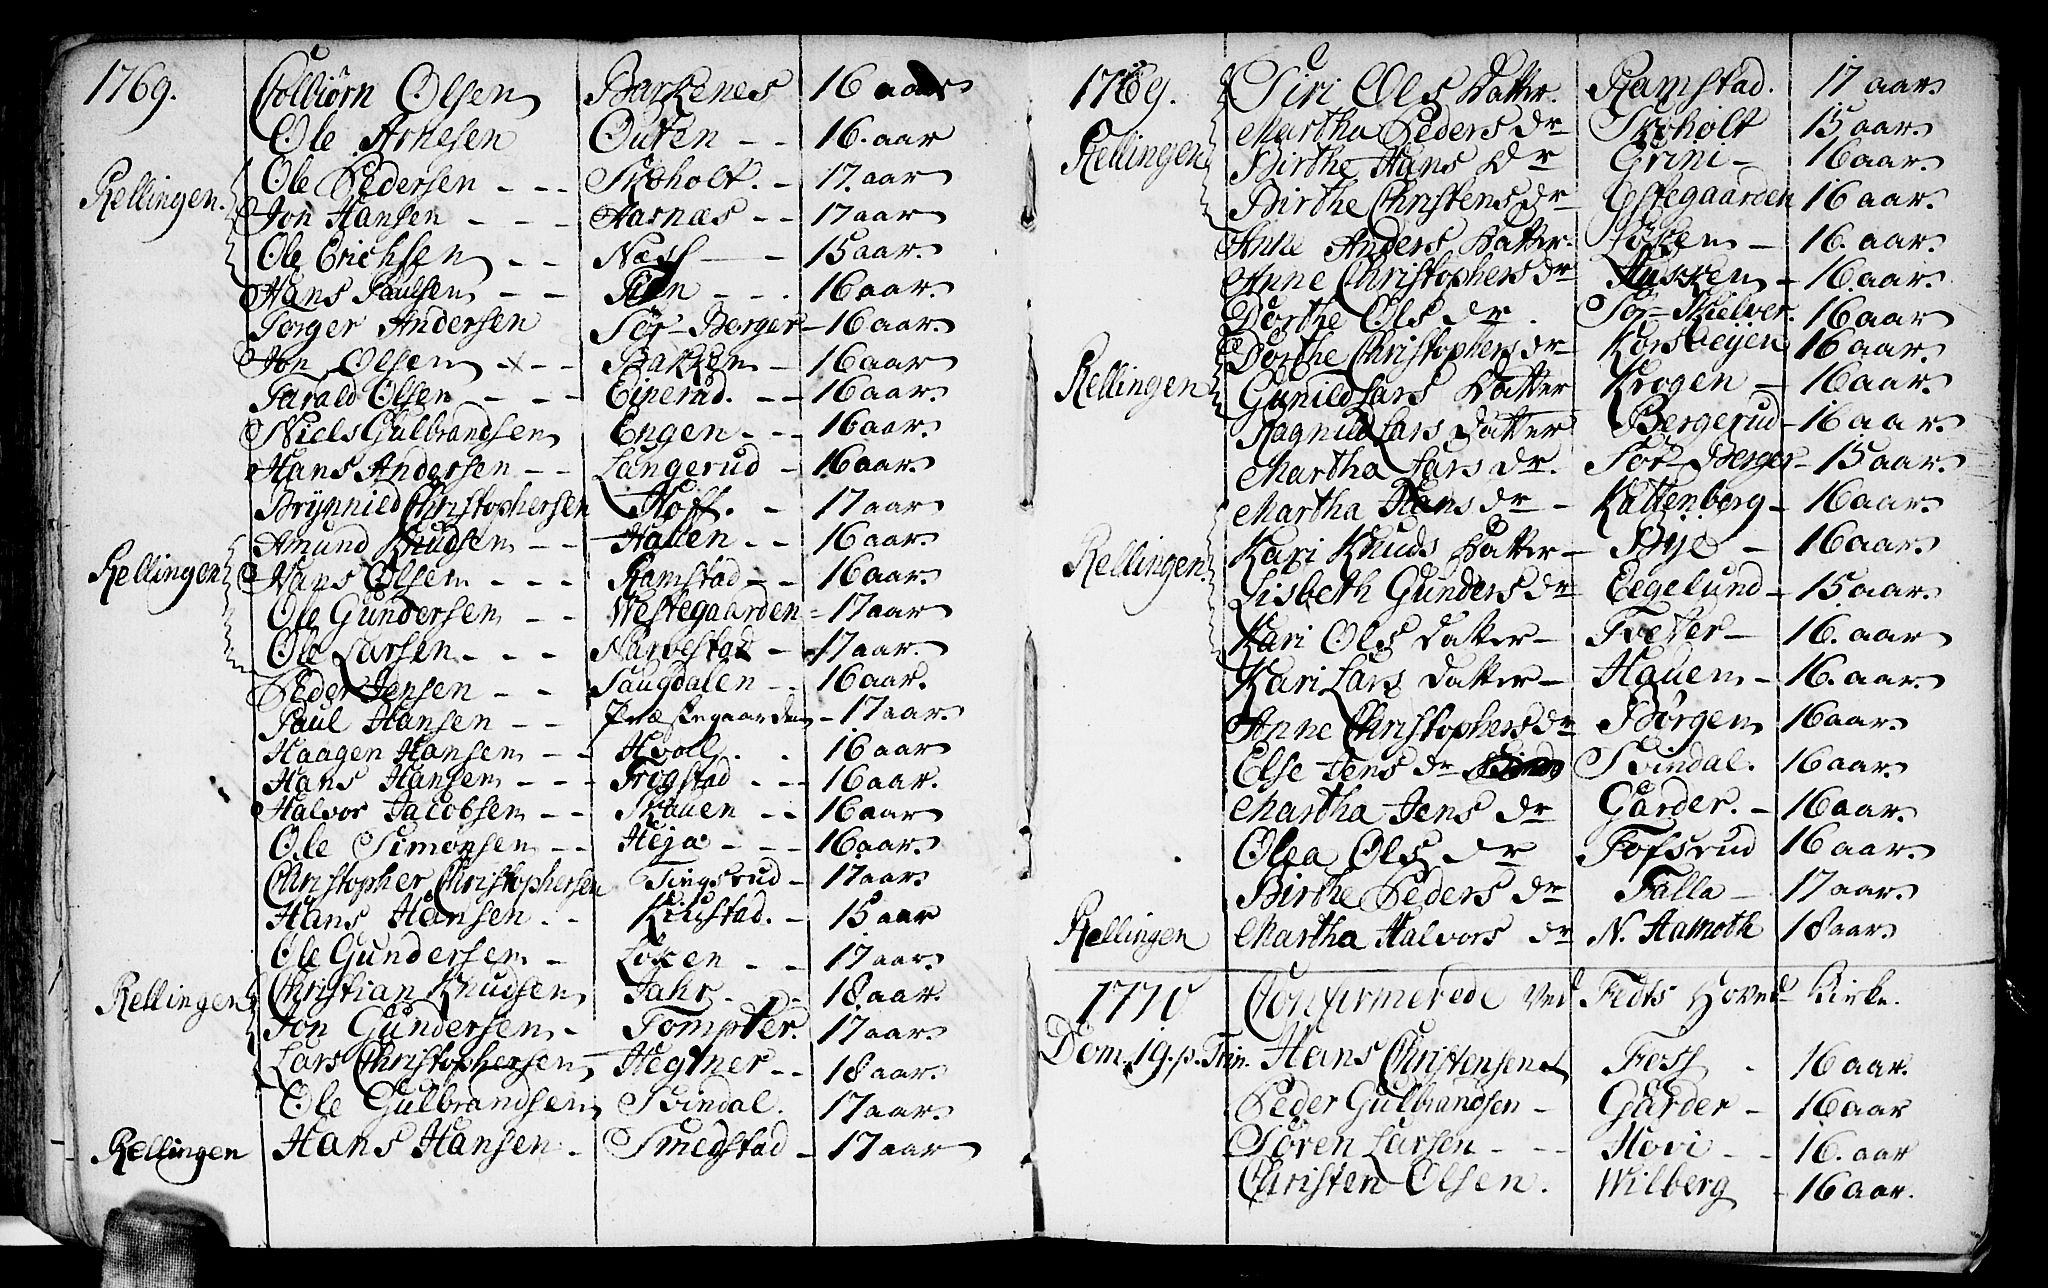 1769. Colbiörn Olsen Barkenes 16 aar
Ole Arnesen Outen - - 16. aar
Ole Pedersen - - - Skoholt. - 17. aar
Rellingen. Jon Hansen - - - Harnæs - - 17 aar
Ole Erichsen - - Næss - - 15 aar.
Hans Paulsen - - - - . 16 aar.
Torger Andersen Sör-Berger - 16 aar.
Jon Olsen - x - - Bakken - 16 aar
Harald Olsen - - - Einerud. - - 16 aar.
Niels Gulbrandsen Engen - - - 16 aar.
Hans Andersen - - Langerud - 16 aar.
Brynnild Christophersen Hoff. - 17 aar
Amund Knudsen - - Hauen - - 16 aar.
Rellingen Hans Olsen - - - Ramstad - - 16 aar.
Ole Gundersen - - Westegaarden - 17 aar
Ole Larsen - - - Narvestad - 17 aar.
Peder Jensen - - Saugdalen - . 16 aar.
Paul Hansen - - Præstegaarden - 17 aar.
Haagen Hansen - - Hvoll. . 16 aar
Hans Hansen - - - Trögstad - - - 16 aar.
Halvor Jacobsen - - Skauen - - 16 aar
Ole Simonsen - - Heja - - - 16 aar.
Christopher Christophersen Tingsrud - 17 aar.
Hans Hansen - - Kiustad. - 15 aar
Ole Gundersen - Löken - - 17 aar.
Rellingen Christian Knudsen Fahr - - 18 aar.
Jon Gundersen - Tompter. 17 aar.
Lars Christophersen Hegtner - - 18 aar.
Ole Gulbrandsen Svindal. 17 aar.
Rellingen Hans Hansen - Smedstad - 17 aar
1769. Siri Ols Datter. Ramstad. 17 aar.
Martha Peders dr Skoholt 15 aar.
Rellingen Birthe Hans Dr Grini - 16 aar.
Birthe Christens dr Estegaarden 16 aar.
Anne Anders Datter - Löken - 16. aar.
Anne Christophers dr - 16 aar.
Dorthe Ols dr . Sör-Skielver. 16 aar
Dorthe Christophers dr Korsveijen 16 aar.
Rellingen Gunild Lars Datter Krogen - 16 aar.
Ragnild Lars Datter Bergerud - 16 aar.
Martha Lars dr. Sör-Berger - 15 aar.
Martha Hans dr - Kattenberg - 16 aar.
Rellingen. Kari Knuds Datter - Bye - 16 aar.
Lisbeth Gunders dr Eegelund - 15 aar.
Kari Ols Datter - Tveter - 16. aar
Kari Lars Datter - Hauen - 16. aar.
Anne Christophers dr Börgen 16 aar.
Else Jens dr Svindal. 16 aar.
Martha Jens dr Garder. - 16 aar.
Olea Ols dr Fossrud 16 aar.
Birthe Peders dr Falla - 17 aar.
Rellingen Martha Halvors dr N. Hamoth 18 aar.
1770 Confirmerede ved Fedts Hoved Kirke.
Dom. 19. p. Trin. Hans Christensen Foss . 16 aar.
Peder Gulbrandsen - Garder - 16 aar
Sören Larsen - - - Hovi - - 16. aar
Christen Olsen. Wilberg - 16 aar.